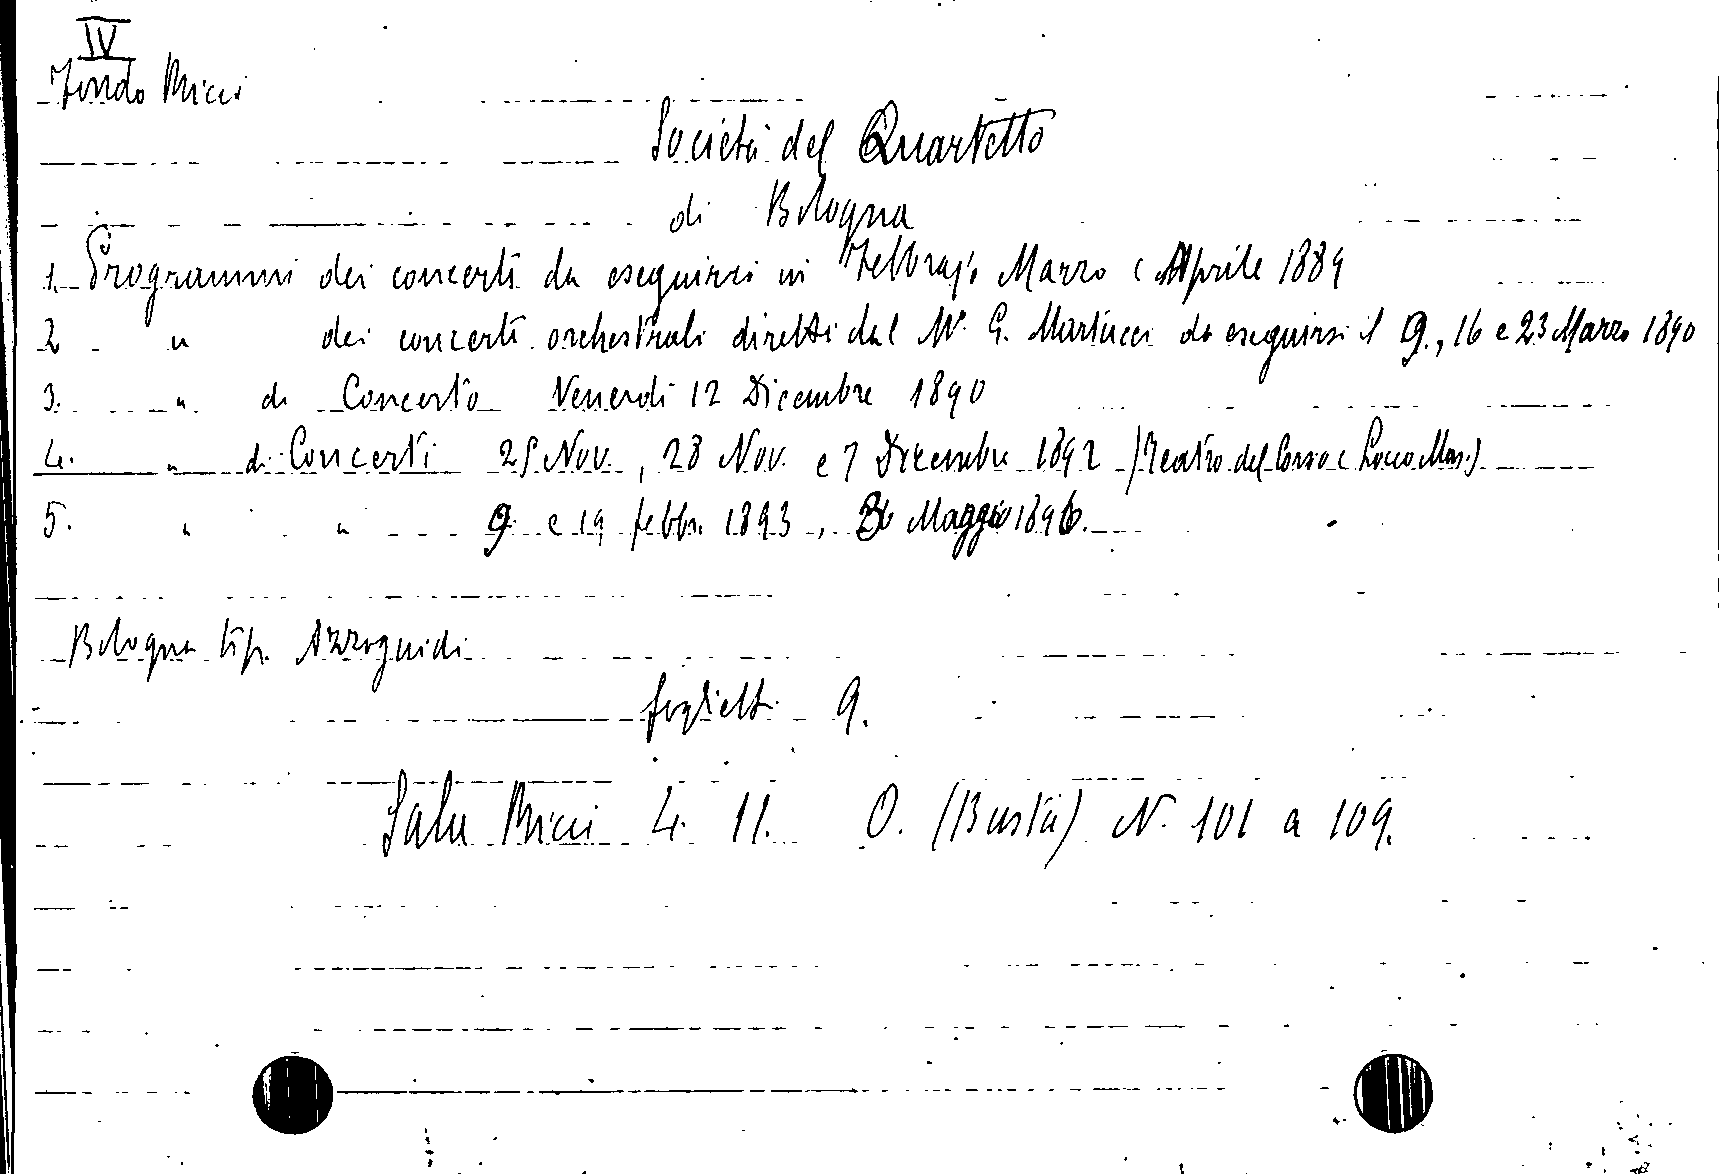 IV
Fondo Ricci
Società del Quartetto
di Bologna
1. Programmi dei concerti da eseguirsi in Febbrajo Marzo e Aprile 1889
2 " dei concerti orchestrali diretti dal M°. G. Martucci da eseguirsi il 9., 16 e 23 Marzo 1890
3. " di Concerto Venerdì 12 Dicembre 1890
4. " di Concerti 25 Nov., 28 Nov. e 7 Dicembre 1892 (Teatro del Corso e Liceo Mus.)
5. " " 9 e 19 febbr. 1893, Maggio 1896.
Bologna tip. Azzoguidi
foglietti 9.
Sala Ricci 4. 11. O. (Busta) N. 101 a 109.